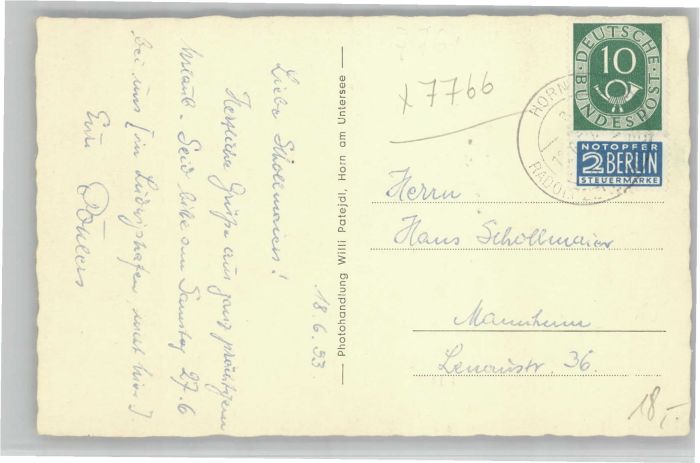 18.6.53
Liebe Schollmaiers!
Herzliche Grüße aus ganz prächtigem
Urlaub. Seid bitte am Samstag 27.6
bei uns [in Ludwigshafen, nicht hier].
Eure
Photohandlung Willi Patejdl, Horn am Untersee
x 7766
HORN
RADOLFZELL
DEUTSCHE
10
BUNDESPOST
NOTOPFER
2 BERLIN
STEUERMARKE
Herrn
Hans Schollmaier
Mannheim
Lenaustr. 36.
18,-